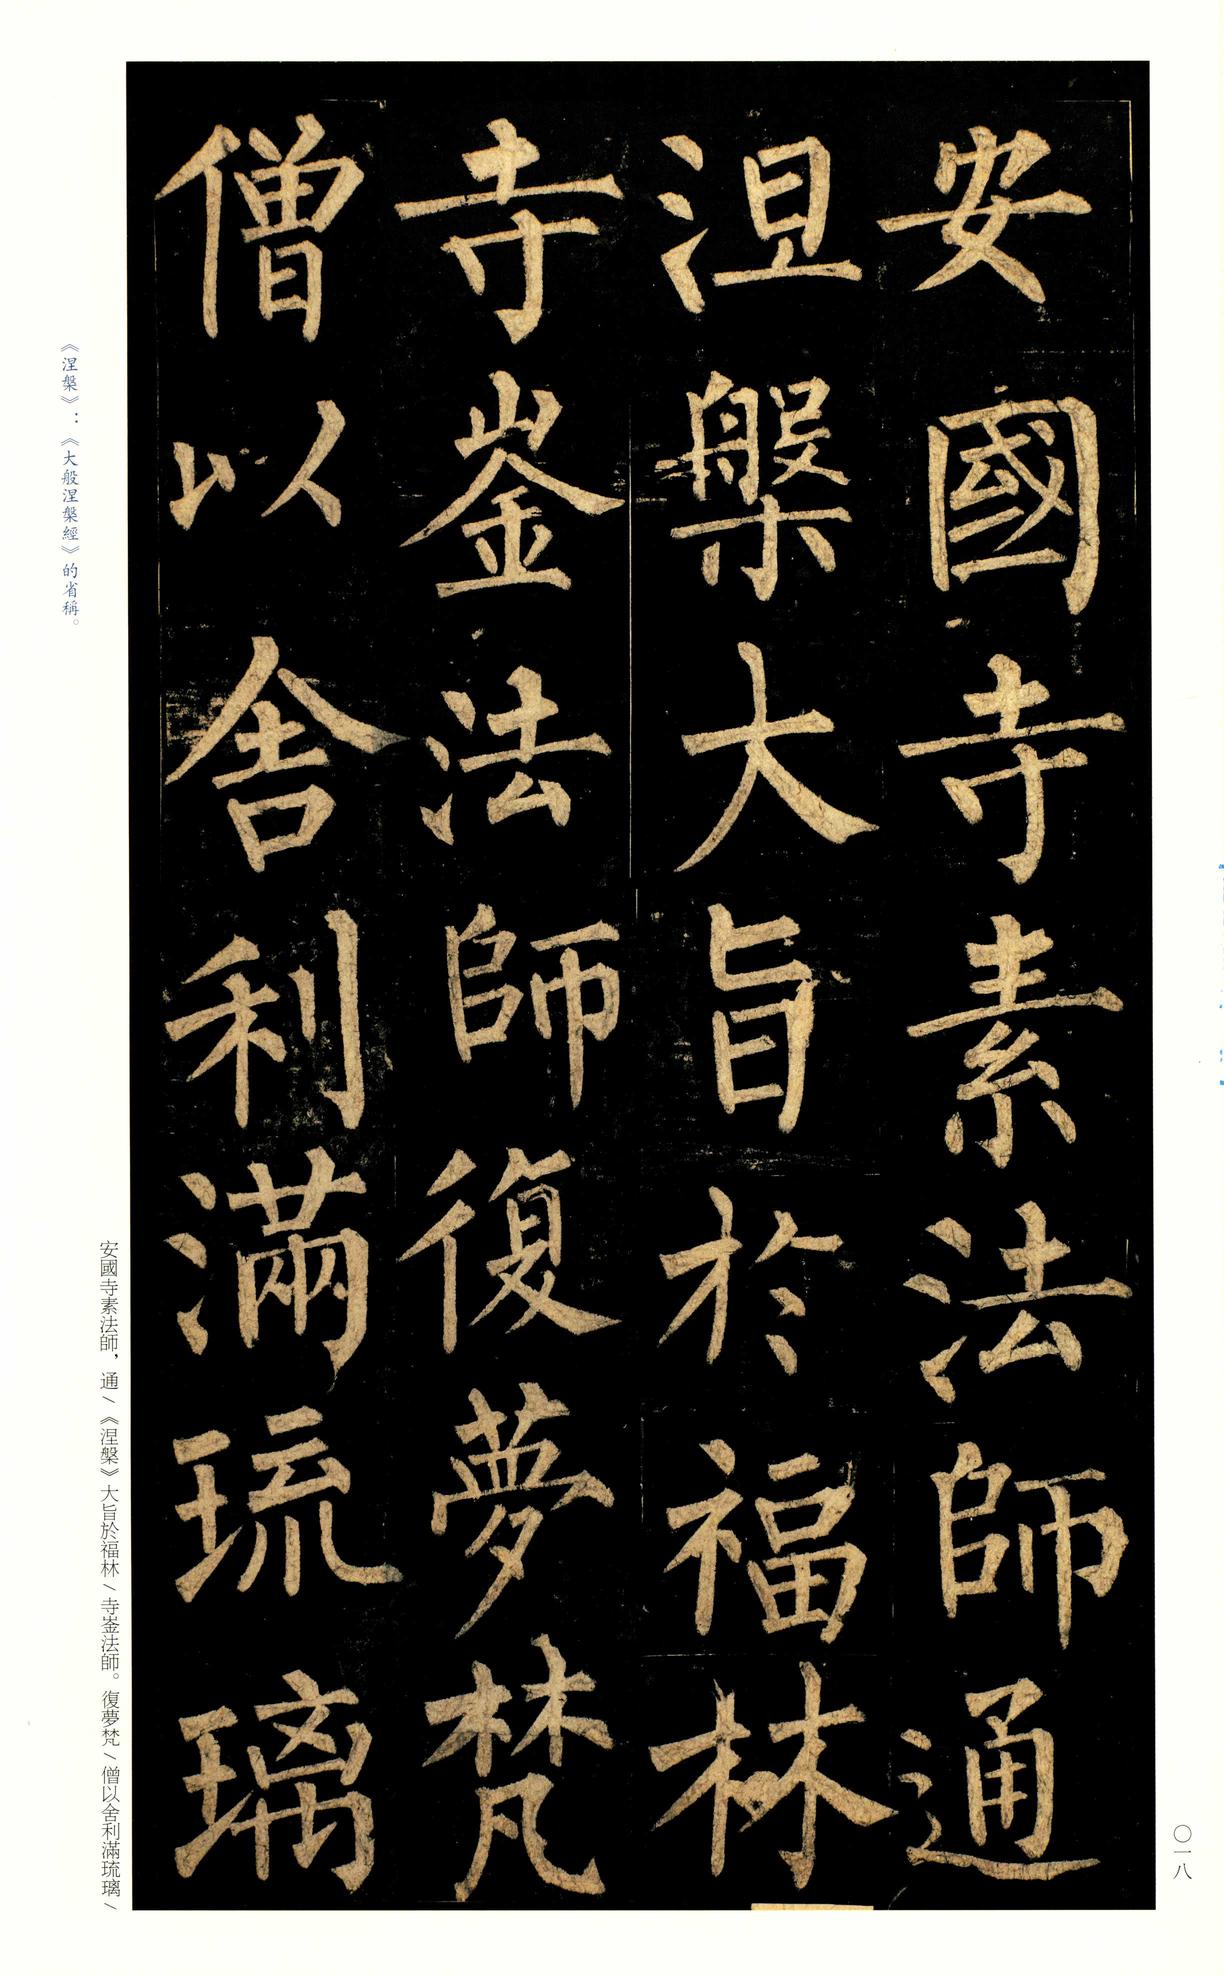 安國寺素法師通
涅槃大旨於福林
寺崟法師復夢梵
僧以舍利滿琉璃
安國寺素法師，通\《涅槃》大旨於福林\寺崟法師。復夢梵\僧以舍利滿琉璃\
《涅槃》：《大般涅槃經》的省稱。
〇一八